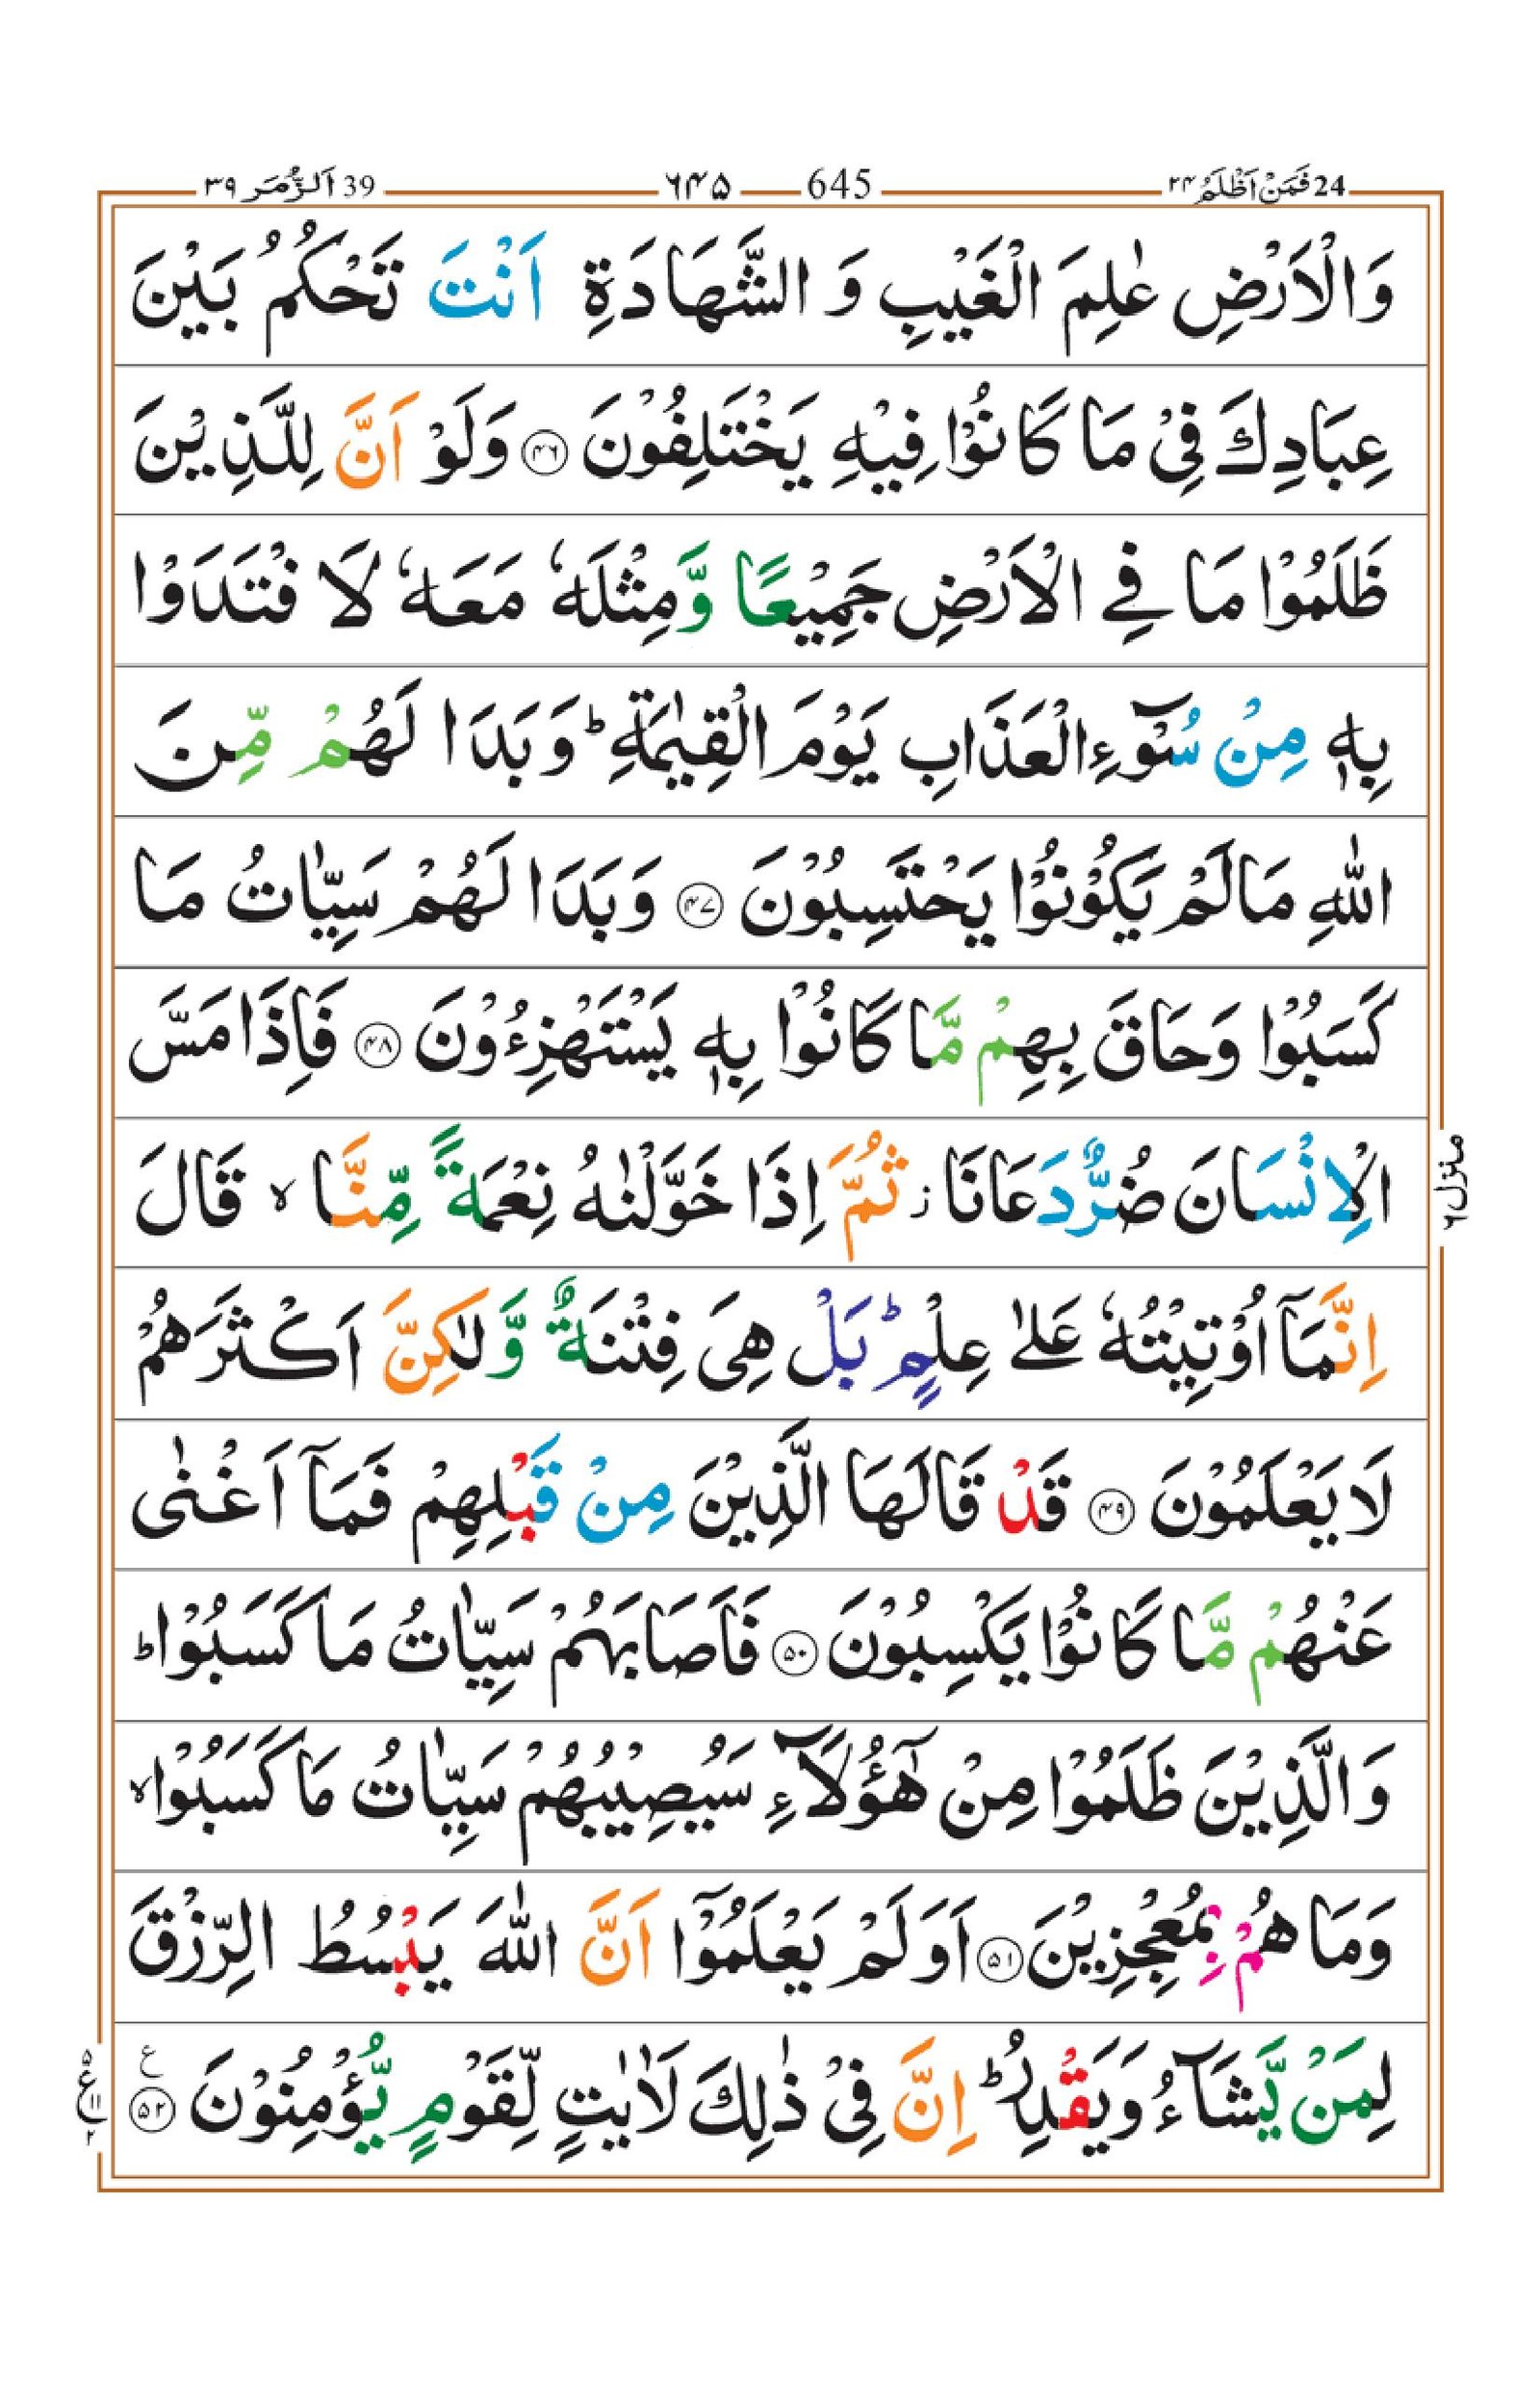 24 فَمَنْ اَظْلَمُ ۲۴
645 ۶۴۵
39 اَلزُّمَر ۳۹
وَالْاَرْضِ عٰلِمَ الْغَيْبِ وَ الشَّهَادَةِ اَنْتَ تَحْكُمُ بَيْنَ
عِبَادِكَ فِىْ مَا كَانُوْا فِيْهِ يَخْتَلِفُوْنَ ۴۶ وَلَوْ اَنَّ لِلَّذِيْنَ
ظَلَمُوْا مَا فِے الْاَرْضِ جَمِيْعًا وَّمِثْلَهٗ مَعَهٗ لَا فْتَدَوْا
بِهٖ مِنْ سُوْٓءِ الْعَذَابِ يَوْمَ الْقِيٰمَةِؕ وَبَدَا لَهُمْ مِّنَ
اللّٰهِ مَالَمْ يَكُوْنُوْا يَحْتَسِبُوْنَ ۴۷ وَبَدَا لَهُمْ سَيِّاٰتُ مَا
كَسَبُوْا وَحَاقَ بِهِمْ مَّا كَانُوْا بِهٖ يَسْتَهْزِءُوْنَ ۴۸ فَاِذَا مَسَّ
الْاِنْسَانَ ضُرٌّ دَعَانَا ز ثُمَّ اِذَا خَوَّلْنٰهُ نِعْمَةً مِّنَّا ۙ قَالَ
اِنَّمَاۤ اُوْتِيْتُهٗ عَلٰى عِلْمٍؕ بَلْ هِىَ فِتْنَةٌ وَّلٰكِنَّ اَكْثَرَهُمْ
لَا يَعْلَمُوْنَ ۴۹ قَدْ قَالَهَا الَّذِيْنَ مِنْ قَبْلِهِمْ فَمَاۤ اَغْنٰى
عَنْهُمْ مَّا كَانُوْا يَكْسِبُوْنَ ۵۰ فَاَصَابَهُمْ سَيِّاٰتُ مَا كَسَبُوْاؕ
وَالَّذِيْنَ ظَلَمُوْا مِنْ هٰٓؤُلَاۤءِ سَيُصِيْبُهُمْ سَيِّاٰتُ مَا كَسَبُوْاۙ
وَمَا هُمْ بِمُعْجِزِيْنَ ۵۱ اَوَلَمْ يَعْلَمُوْۤا اَنَّ اللّٰهَ يَبْسُطُ الرِّزْقَ
لِمَنْ يَّشَاۤءُ وَيَقْدِرُؕ اِنَّ فِىْ ذٰلِكَ لَاٰيٰتٍ لِّقَوْمٍ يُّؤْمِنُوْنَ ۵۲ ع
منزل ۶
۵
ع ۱۱
۲